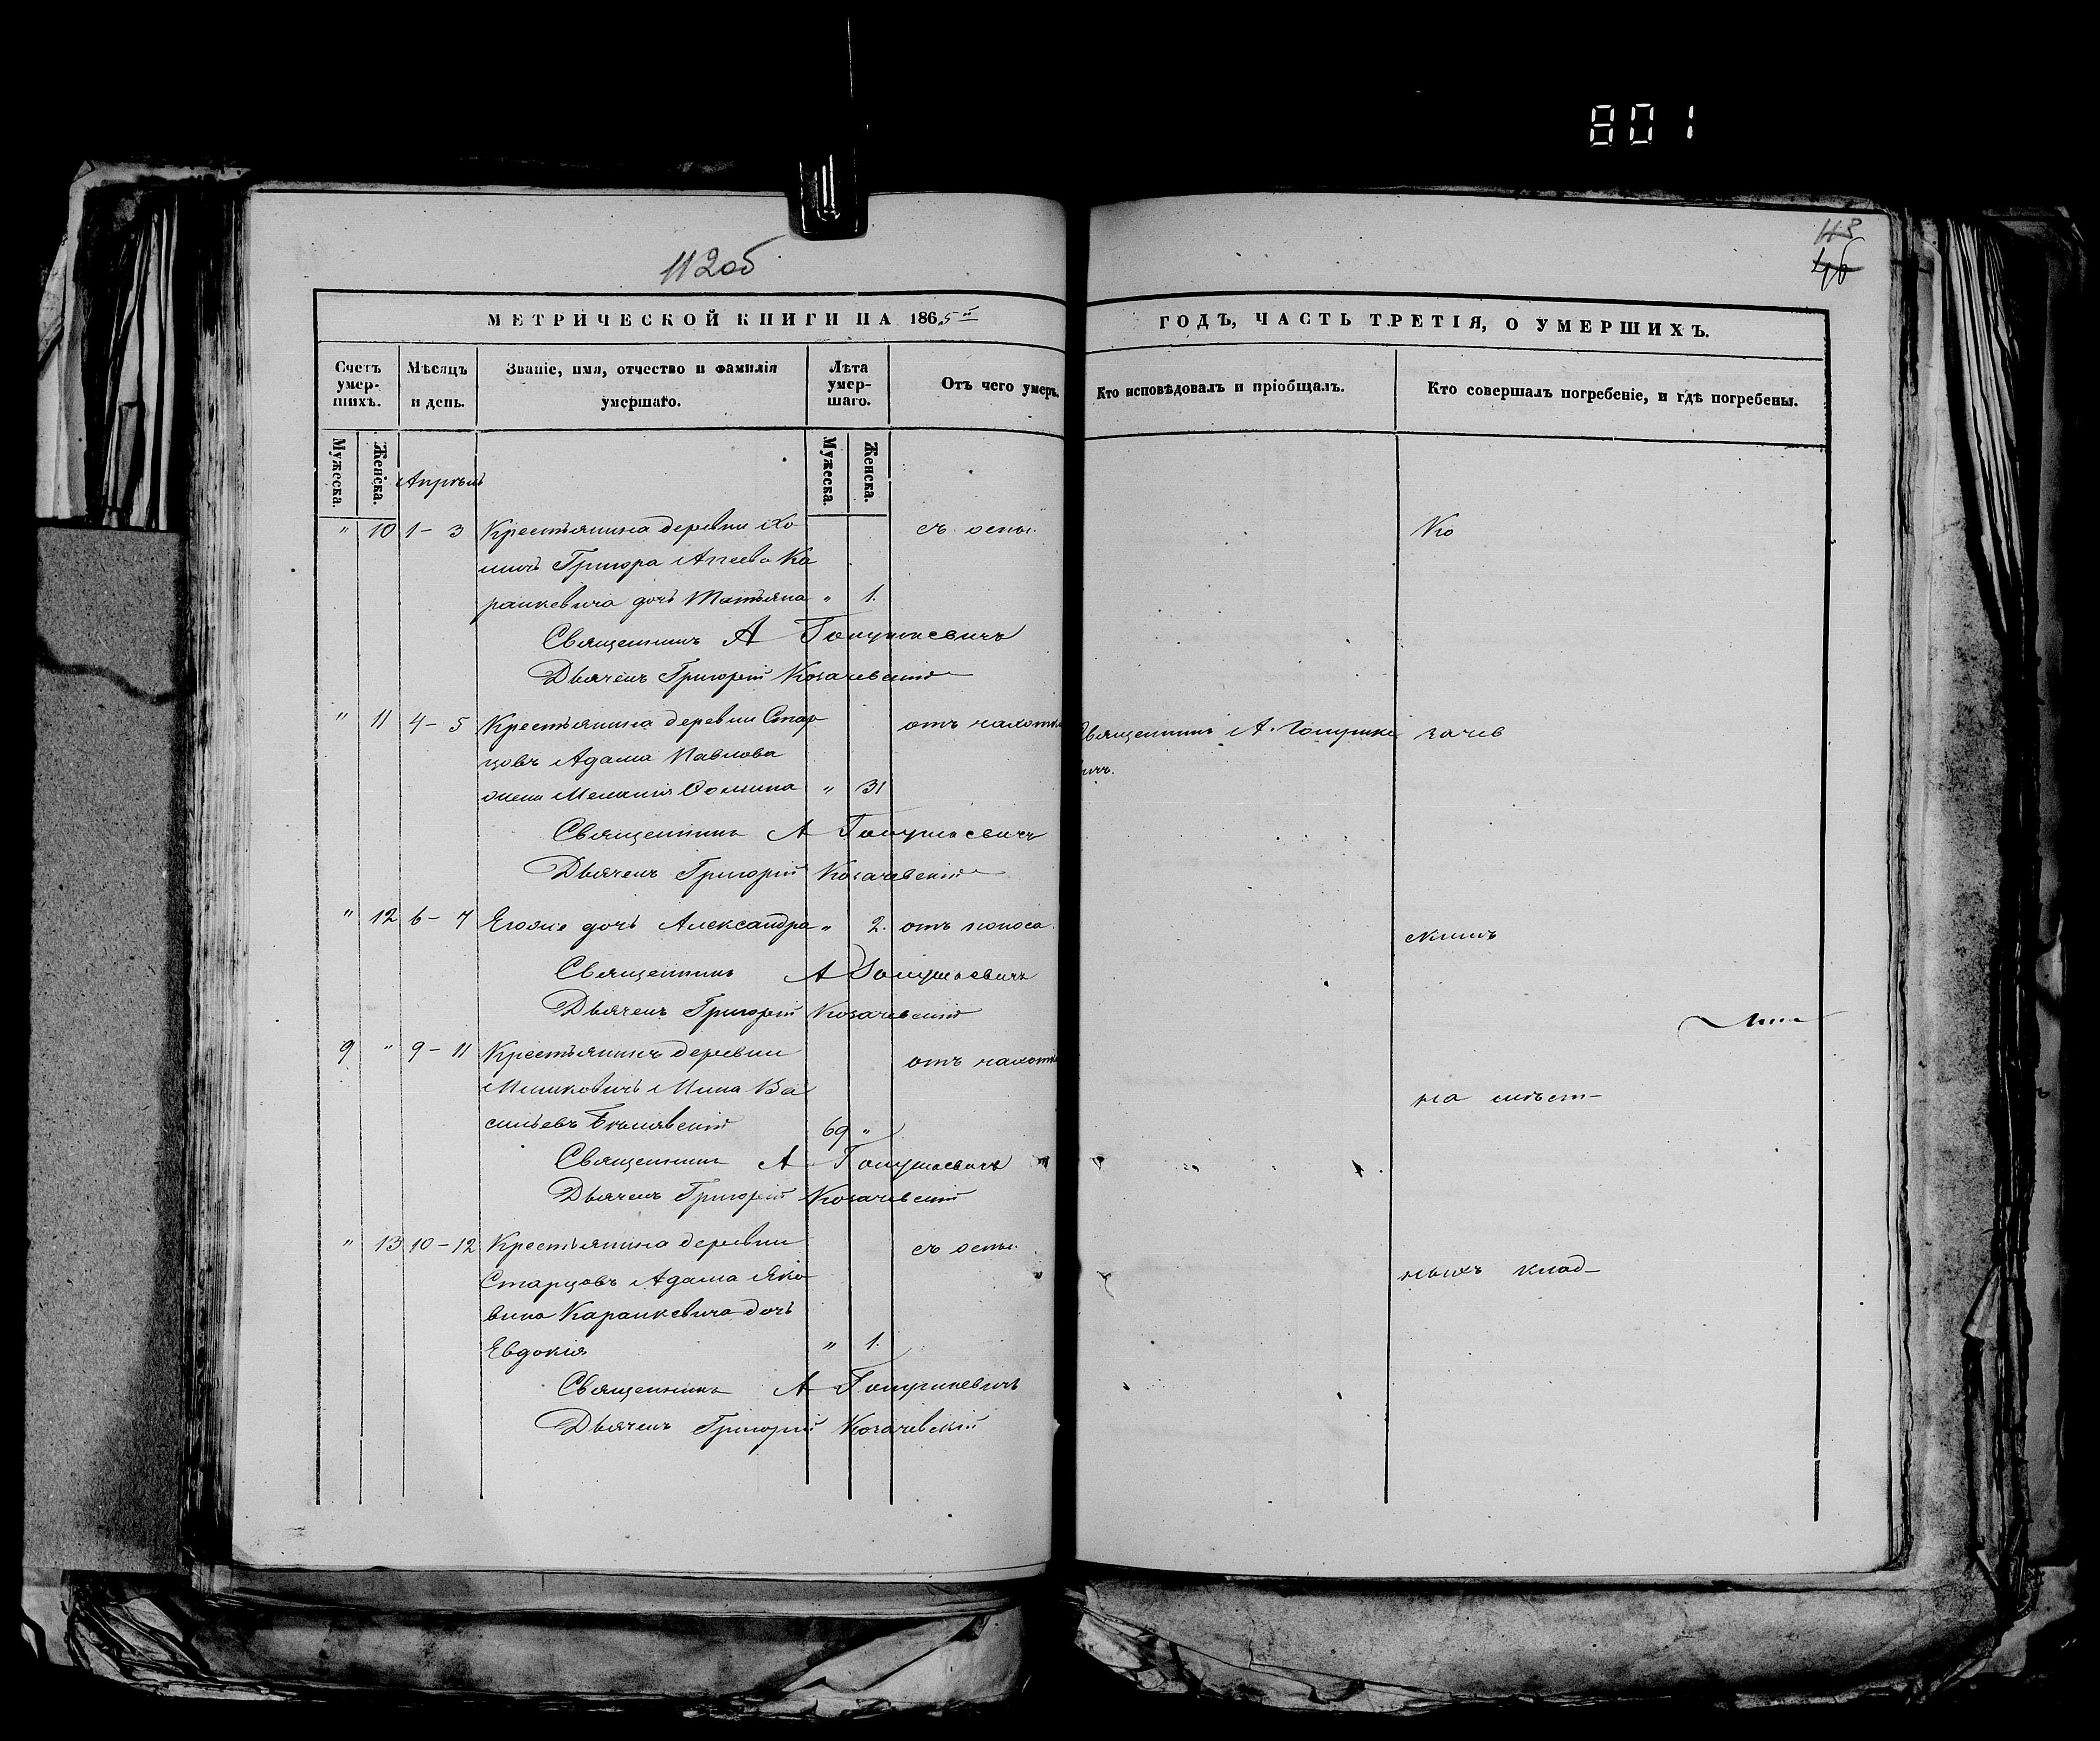 801
112об
113
46
МЕТРИЧЕСКОЙ КНИГИ НА 1865й
ГОДЪ, ЧАСТЬ ТРЕТІЯ, О УМЕРШИХЪ.
Счетъ умершихъ.
Мѣсяцъ и день.
Званіе, имя, отчество и фамилія умершаго.
Лѣта умершаго.
Отъ чего умеръ.
Кто исповѣдовалъ и пріобщалъ.
Кто совершалъ погребеніе, и гдѣ погребены.
Мужеска. Женска. Мужеска. Женска.
Апрѣль
" 10 1-3 Крестьянина деревни Хо съ оспы. Ко
Григора Агеева Ка
ранкевича дочь Татьяна " 1.
Священникъ А Голушкевичъ
Дьячекъ Григорій Козачевскій
" 11 4-5 Крестьянина деревни Стар отъ чахотки Священникъ А. Голушке зачев
цовъ Адама Павлова вичъ.
жена Меланія Фомина " 31
Священникъ А Голушкевичъ
Дьячекъ Григорій Козачевскій
" 12 6-7 Егоже дочь Александра " 2. отъ поноса. скимъ
Священникъ А Голушкевичъ
Дьячекъ Григорій Козачевскій
9 " 9-11 Крестьянинъ деревни отъ чахотки
Мишковичъ Мина Ва на мѣст-
сильевъ 69 "
Священникъ А Голушкевичъ
Дьячекъ Григорій Козачевскій
" 13 10-12 Крестьянина деревни съ оспы.
Старцовъ Адама Яко ныхъ клад-
вина Каранкевича дочь
Евдокія " 1.
Священникъ А Голушкевичъ
Дьячекъ Григорій Козачевскій